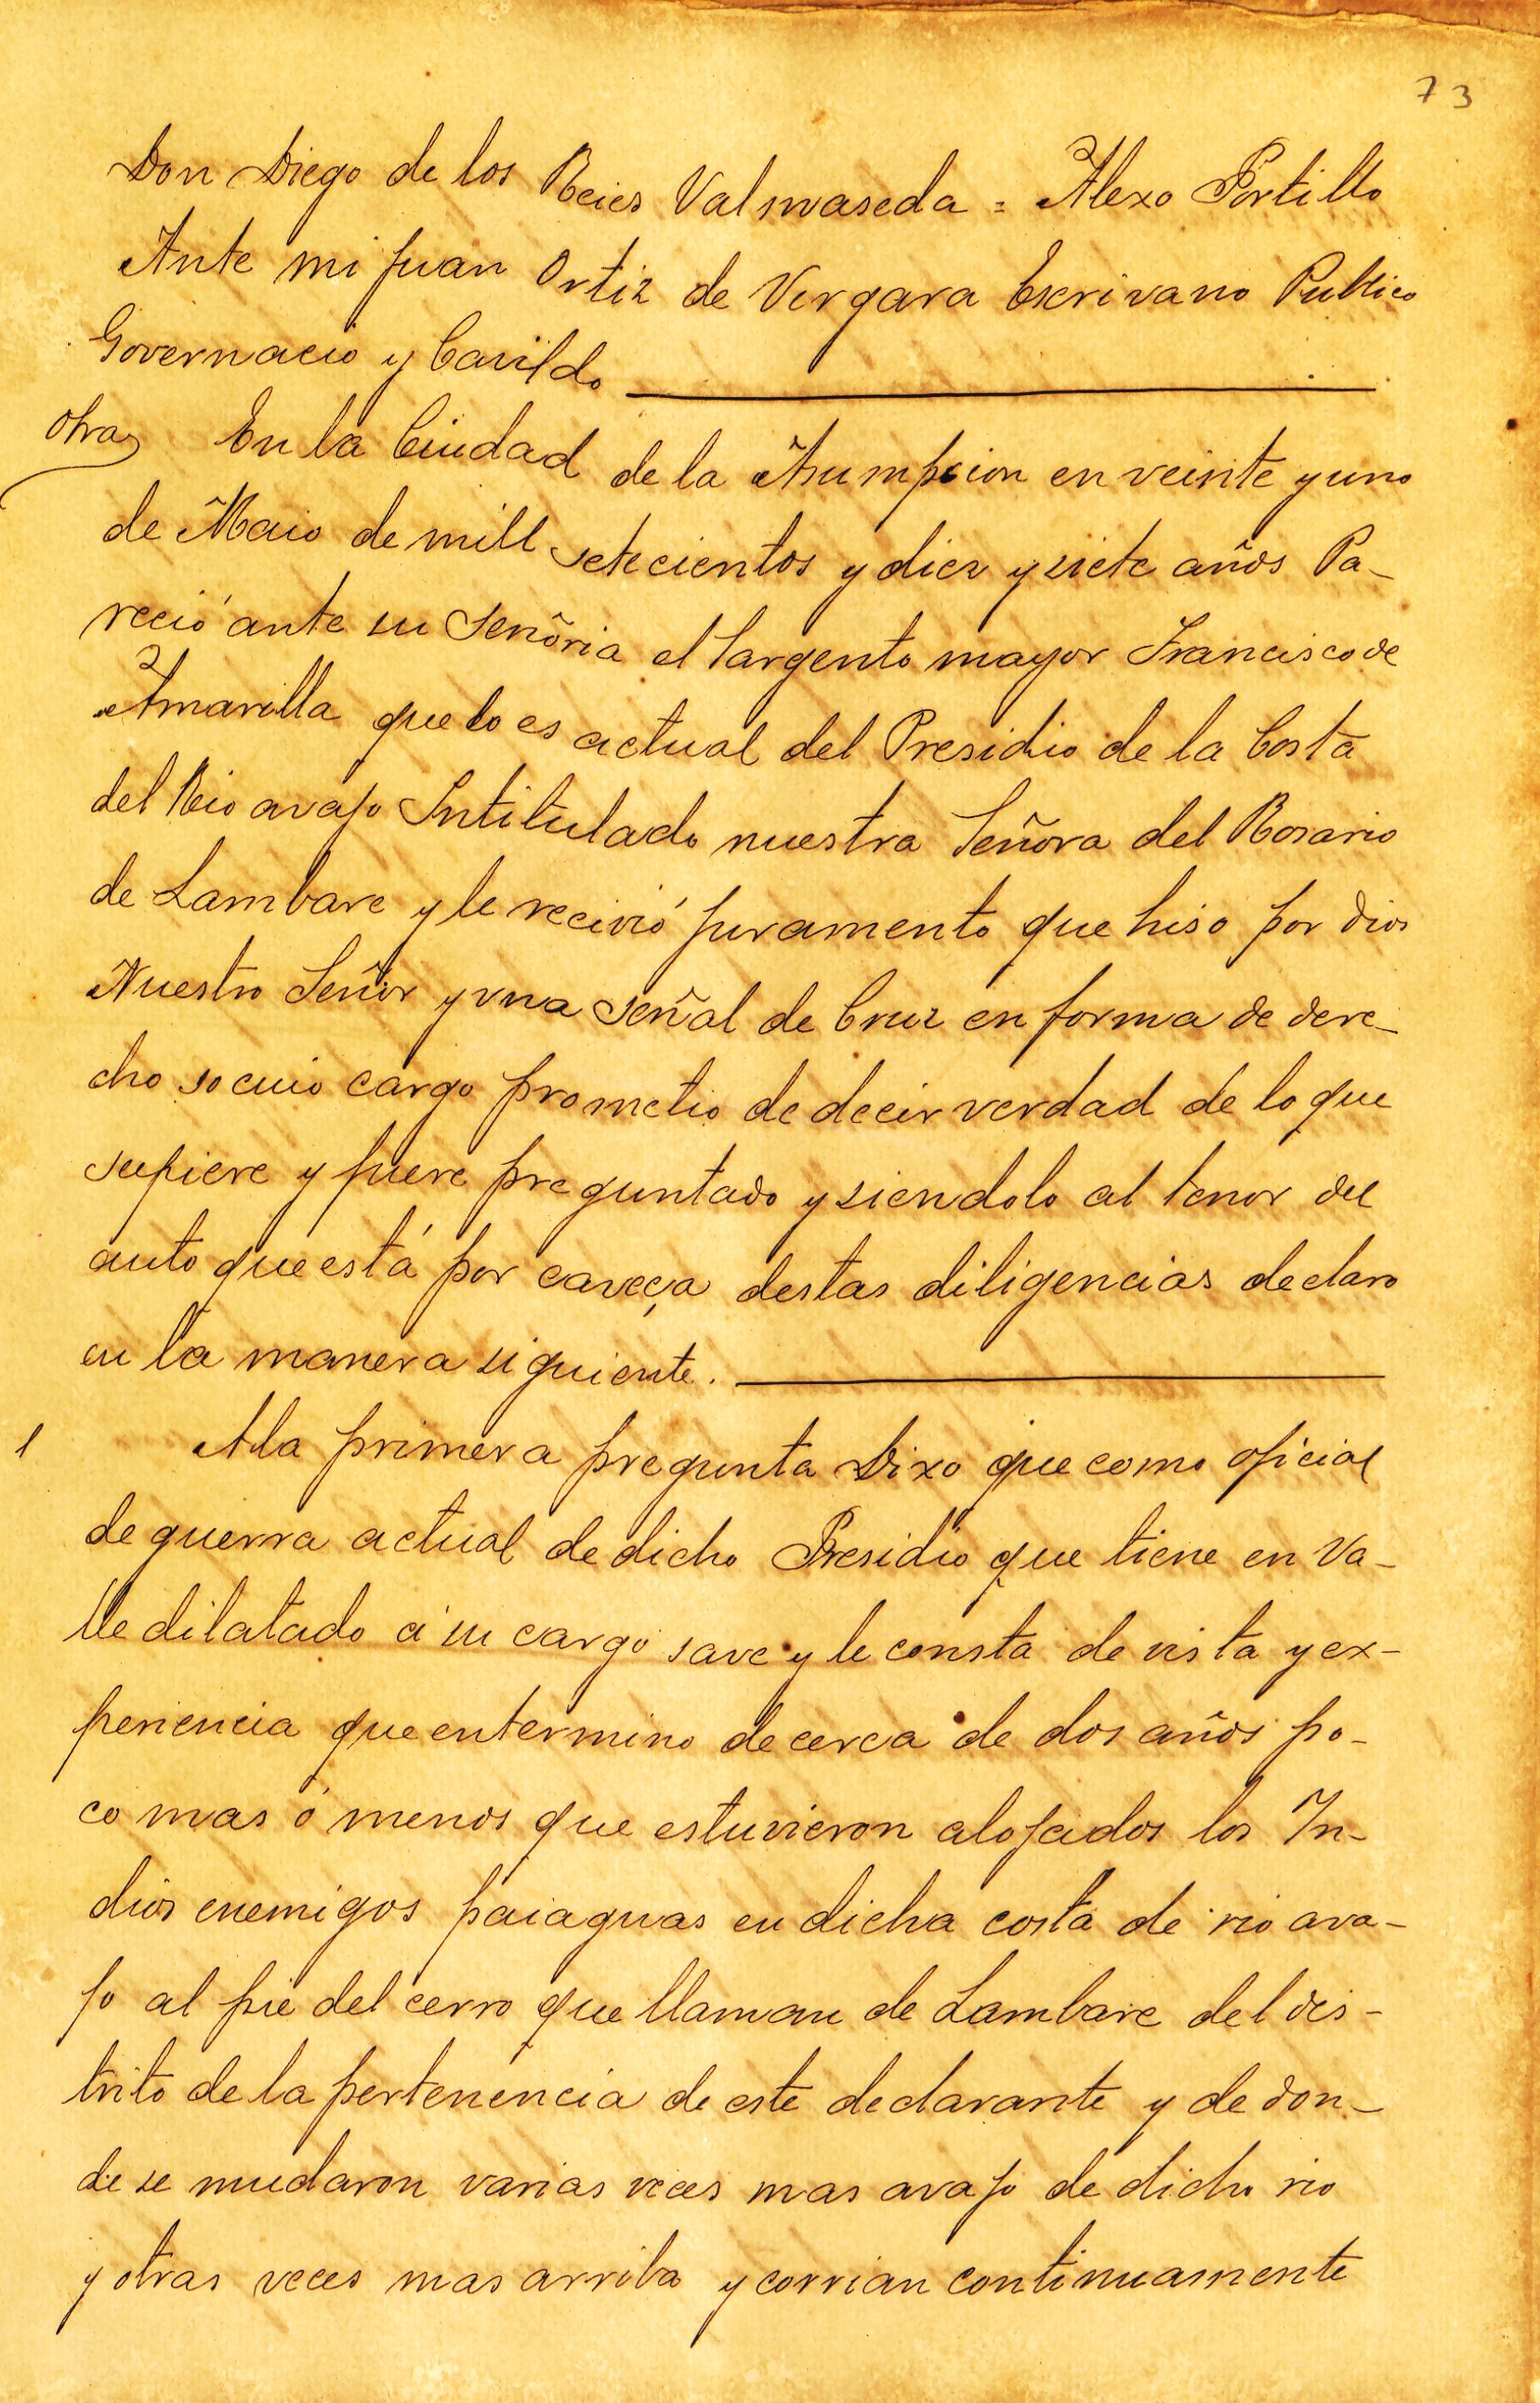 73
Don Diego de los Reies Valmaseda = Alexo Portillo
Ante mi Juan Ortiz de Vergara Escrivano Publico
Governacio y Cavildo
Otra En la Ciudad de la Asumpcion en veinte y uno
de Maio de mill setecientos y diez y siete años Pa-
reció ante su Señoria el Sargento mayor Francisco de
Amarilla que lo es actual del Presidio de la Costa
del Rio avajo Intitulado nuestra Señora del Rosario
de Lambare y le recivió juramento que hiso por Dios
Nuestro Señor y una señal de Cruz en forma de dere-
cho so cuio cargo prometio de decir verdad de lo que
supiere y fuere preguntado y siendolo al tenor del
auto que está por caveça destas diligencias declaro
en la manera siguiente.
1 A la primera pregunta Dixo que como oficial
de guerra actual de dicho Presidio que tiene en Va-
lle dilatado á su cargo save y le consta de vista y ex-
periencia que en termino de cerca de dos años po-
co mas ó menos que estuvieron alojados los In-
dios enemigos paiaguas en dicha costa de rio ava-
jo al pie del cerro que llaman de Lambare del dis-
trito de la pertenencia de este declarante y de don-
de se mudaron varias veces mas avajo de dicho rio
y otras veces mas arriba y corrian continuamente